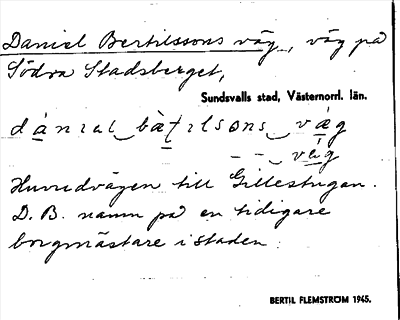 Daniel Bertilssons väg, väg på
Södra Stadsberget,
Sundsvalls stad, Västernorrl. län.
dánıal bàtılsons væg
– – væg
Huvudvägen till Gillestugan.
D. B. namn på en tidigare
borgmästare i staden.
BERTIL FLEMSTRÖM 1945.